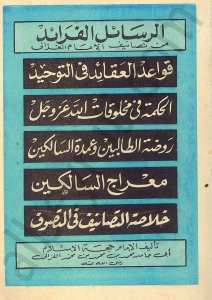 الرسائل الفرائد
من تصانيف الإمام الغزالي
قواعد العقائد في التوحيد
الحكمة في مخلوقات الله عز وجل
روضة الطالبين وعمدة السالكين
معراج السالكين
خلاصة التصانيف في التصوف
تأليف الإمام حجة الإسلام
أبي حامد محمد بن محمد بن محمد الغزالي